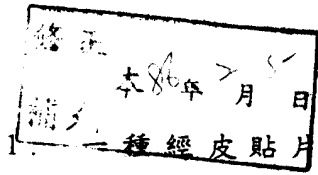 修正
本86年7月 日
補
1. 一種經皮貼片